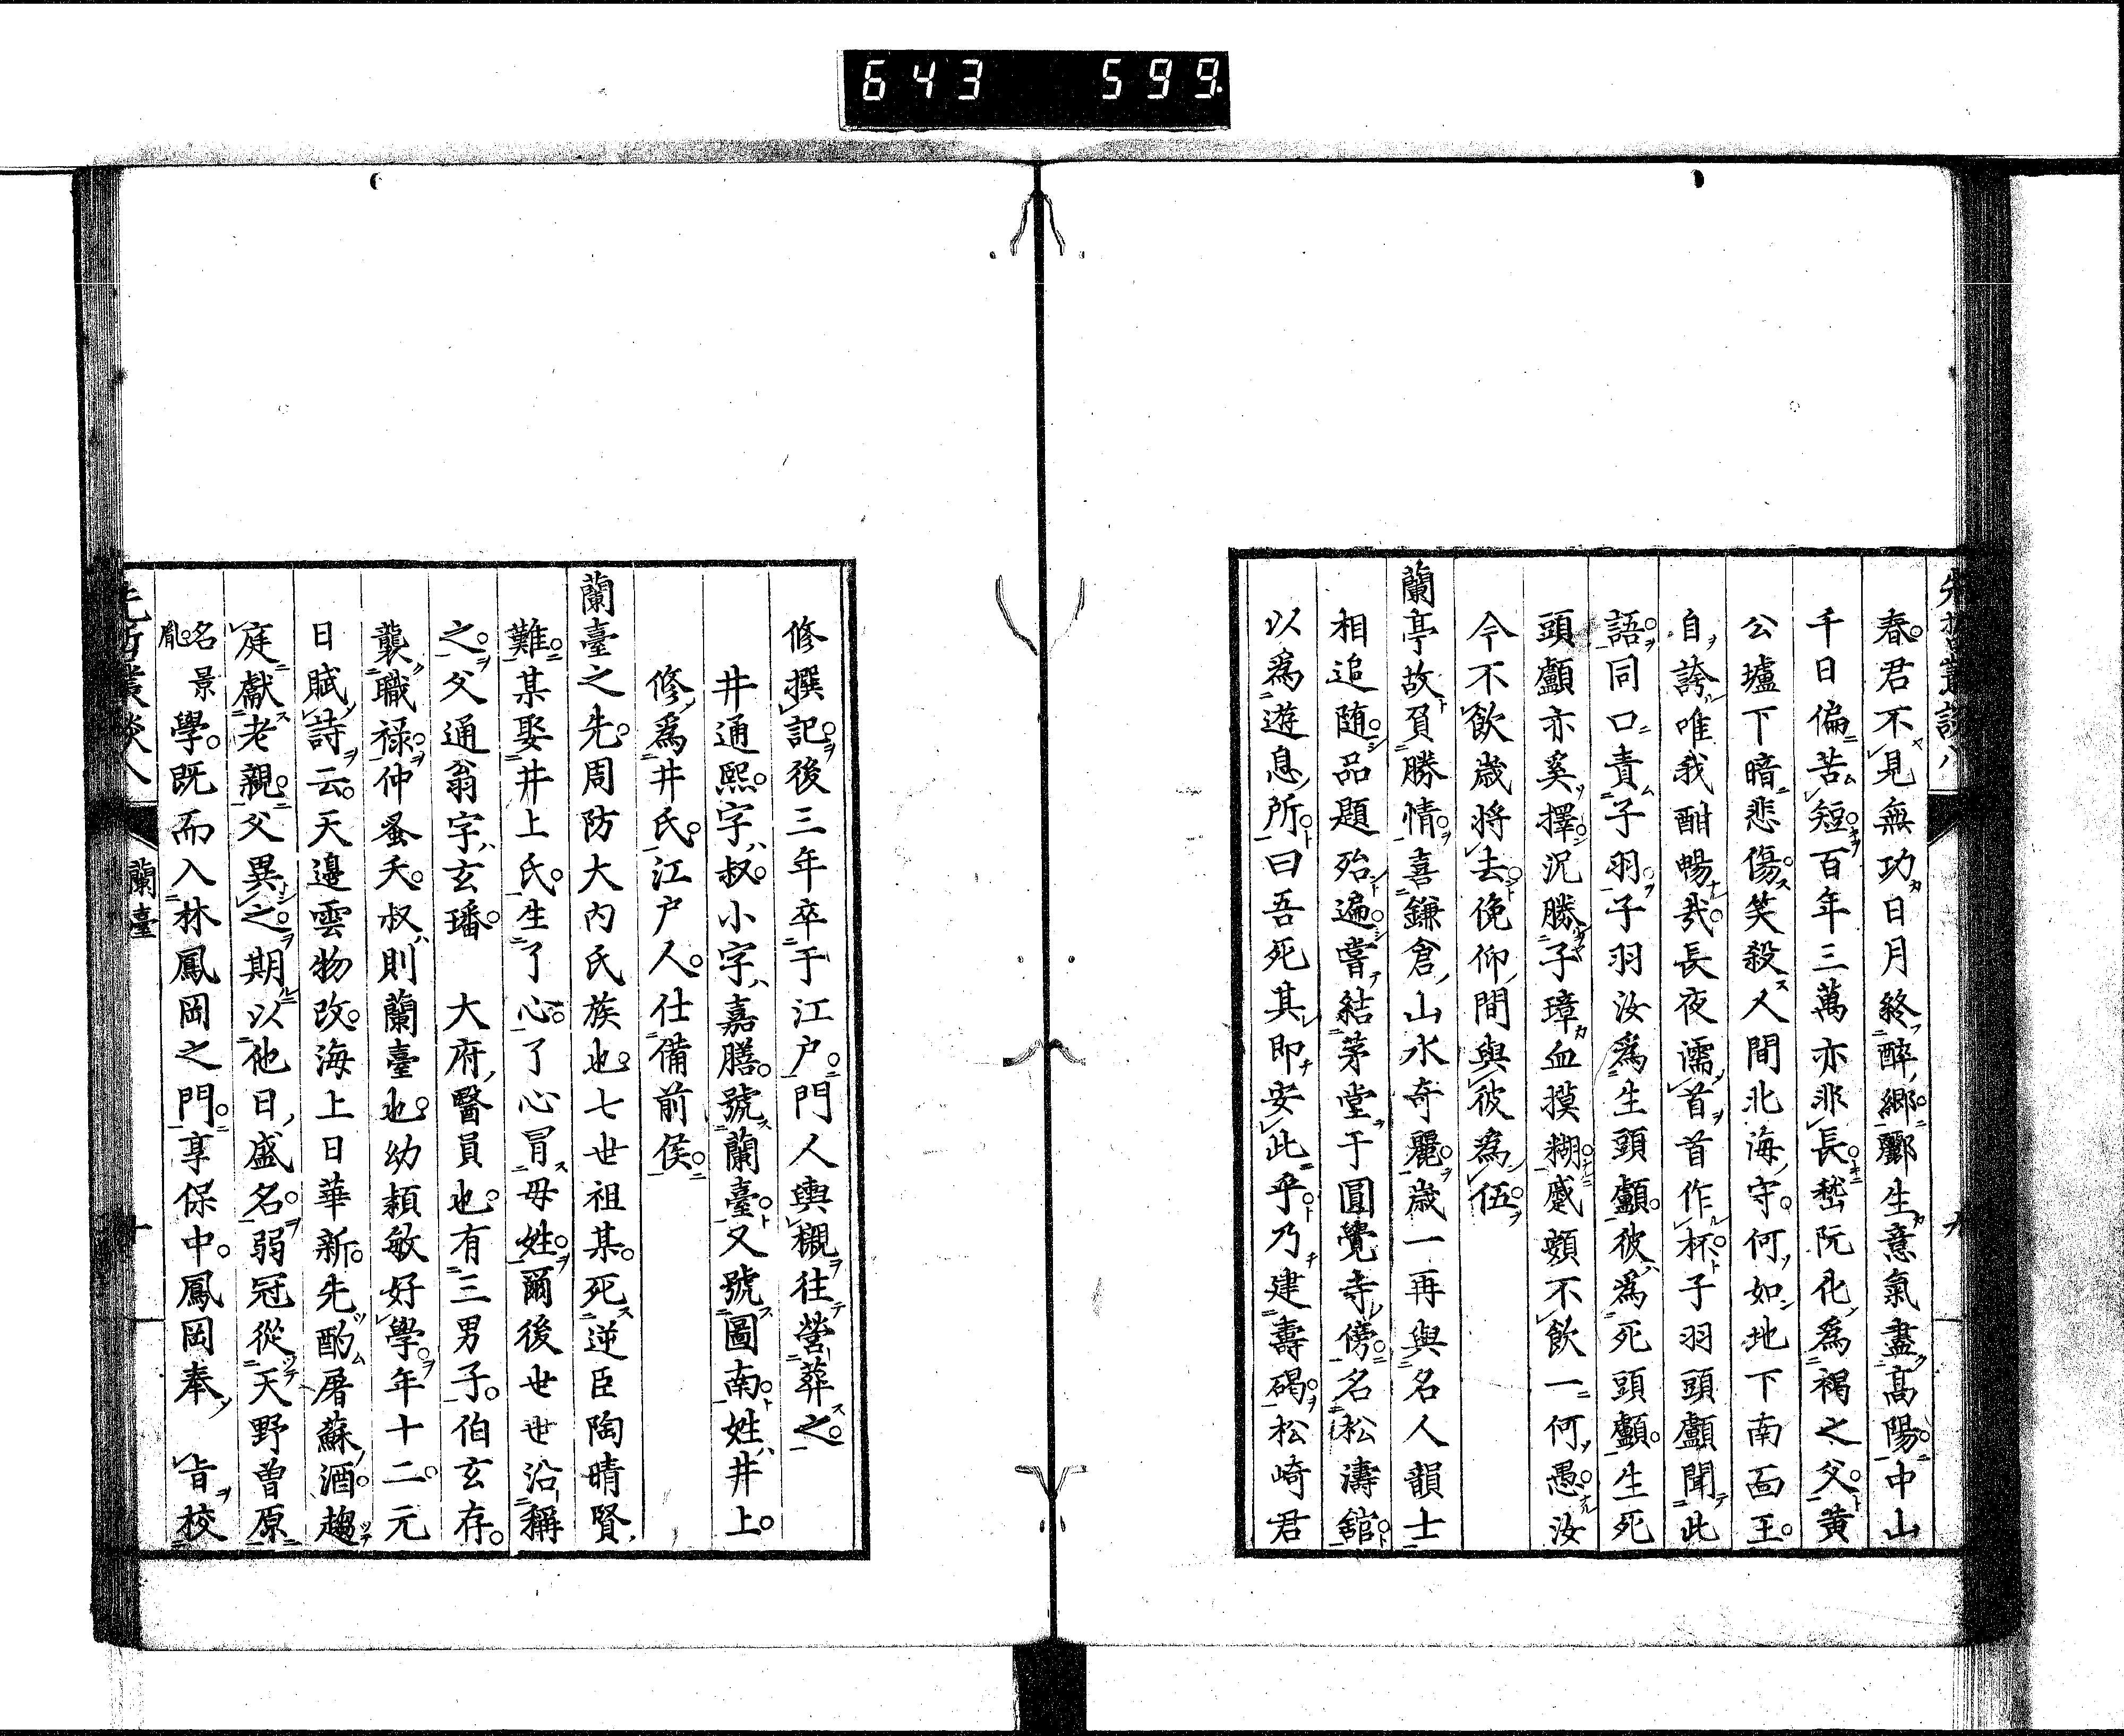 643 599
春君不見無功日月終醉郷酈生意氣盡高陽中山
千日偏苦短百年三萬亦非長嵆阮化爲褐之父黃
公壚下暗悲傷笑殺人間北海守何如地下南面王
自誇唯我酣暢哉長夜濡首首作杯子羽頭顱聞此
語同口責子羽子羽汝爲生頭顱彼爲死頭顱生死
頭顱亦奚擇況勝子璋血摸糊蹙頞不飲一何愚汝
今不飲歲將去俛仰間與彼爲伍
蘭亭故負勝情喜鎌倉山水奇麗歲一再與名人韻士
相追随品題殆遍嘗結茅堂于圓覺寺傍名松濤舘
以爲遊息所曰吾死其即安此乎乃建壽碣松崎君
修撰記後三年卒于江户門人輿櫬往營葬之
井通熙字叔小字嘉膳號蘭臺又號圖南姓井上
修爲井氏江户人仕備前侯
蘭臺之先周防大内氏族也七世祖某死逆臣陶晴賢
難某娶井上氏生了心了心冒母姓爾後世世沿稱
之父通翁字玄璠 大府醫員也有三男子伯玄存
襲職祿仲蚤夭叔則蘭臺也幼頴敏好學年十二元
日賦詩云天邊雲物改海上日華新先酌屠蘇酒趨
庭獻老親父異之期以他日盛名弱冠從天野曽原
名景胤學既而入林鳳岡之門享保中鳳岡奉 旨校
蘭臺